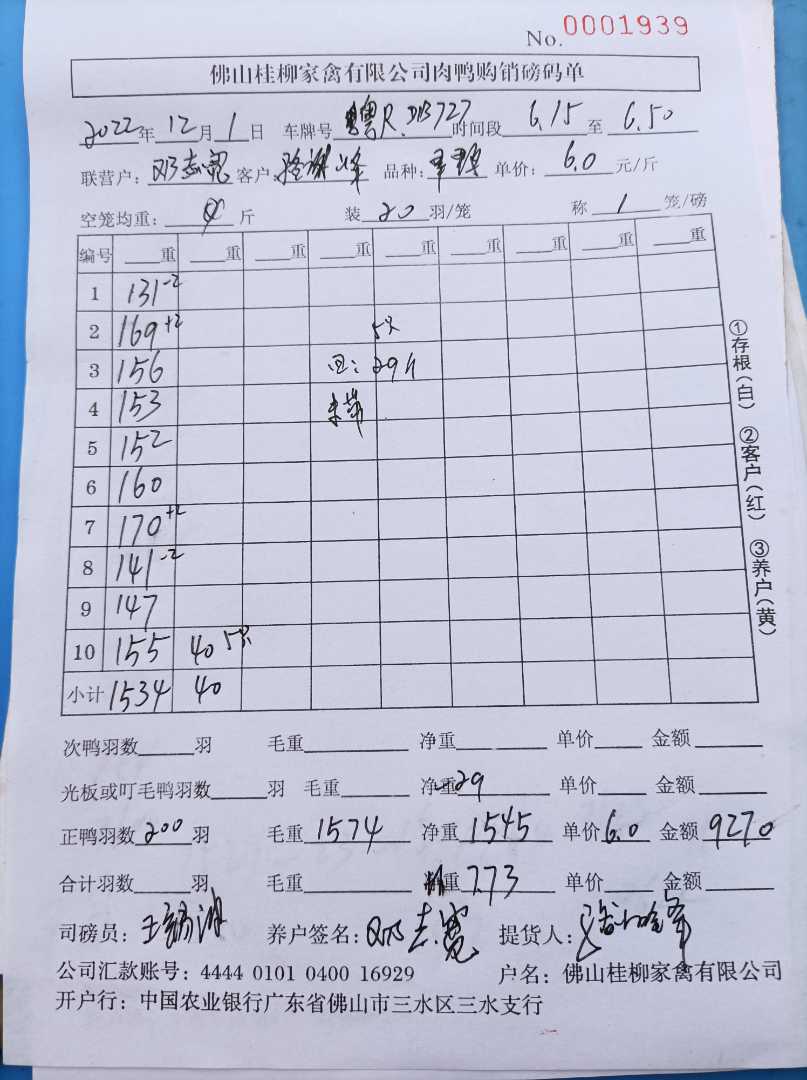 No. 0001939
佛山桂柳家禽有限公司肉鸭购销磅码单
2022年12月1日 车牌号 粤R.DB727 时间段 6.15 至 6.50
联营户: 邓志宽 客户 单价: 6.0 元/斤 品种:
空笼均重: 斤 装 20 羽/笼 称 1 笼/磅
编号 重 重 重 重 重 重 重 重 重
1 131-2
2 169+2 5只
3 156 回: 29斤
4 153
5 152
6 160
7 170+2
8 141-2
9 147
10 155 40 5只
小计 1534 40
①存根(白) ②客户(红) ③养户(黄)
次鸭羽数 羽 毛重 净重 单价 金额
光板或叮毛鸭羽数 羽 毛重 净重 -29 单价 金额
正鸭羽数 200 羽 毛重 1574 净重 1545 单价 6.0 金额 9270
合计羽数 羽 毛重 重 7.73 单价 金额
司磅员: 养户签名: 邓志宽 提货人:
公司汇款账号: 4444 0101 0400 16929 户名: 佛山桂柳家禽有限公司
开户行: 中国农业银行广东省佛山市三水区三水支行